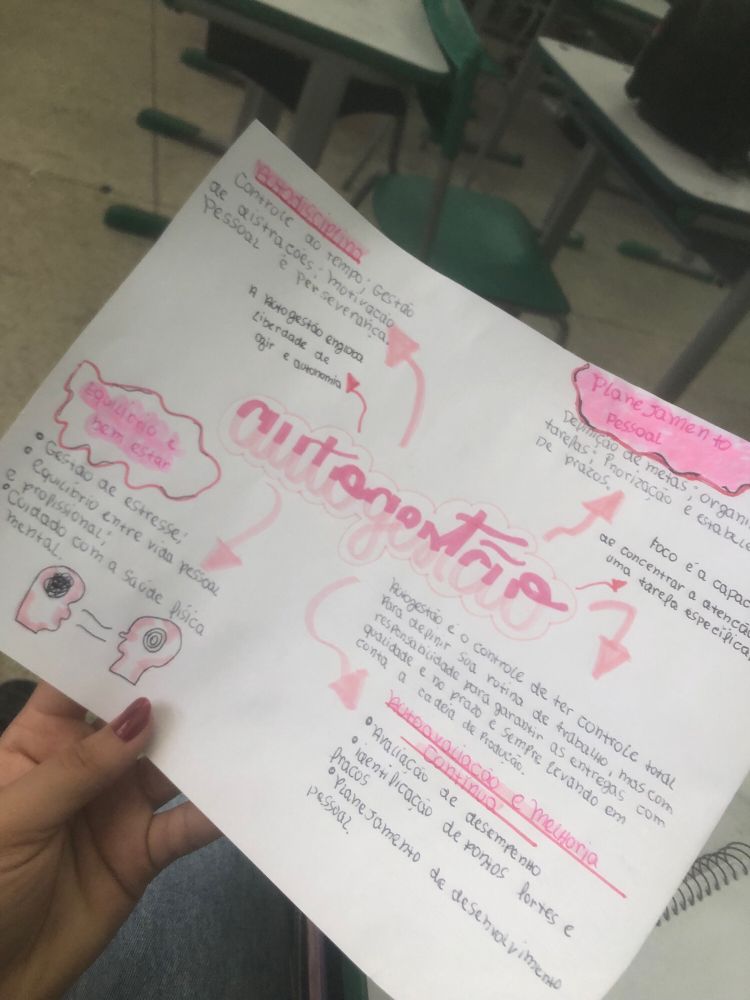 Autodisciplina
Controle do tempo; Gestão
de distrações; motivação
pessoal e perseverança.
A Autogestão engloba
liberdade de
agir e autonomia
Planejamento
pessoal
Definição de metas; organi
tarefas; Priorização e estabele
de prazos.
Equilíbrio e
bem estar
• Gestão de estresse;
• equilíbrio entre vida pessoal
e profissional;
• Cuidado com a saúde física
mental.
autogestão
Foco é a capac
de concentrar a atenção
uma tarefa especifica
Autogestão é o controle de ter controle total
para definir sua rotina de trabalho, mas com
responsabilidade para garantir as entregas com
qualidade e no prazo e sempre levando em
conta a cadeia de produção.
Autoavaliação e melhoria
Contínua
• Avaliação de desempenho
• identificação de pontos fortes e
fracos
• Planejamento de desenvolvimento
pessoal.